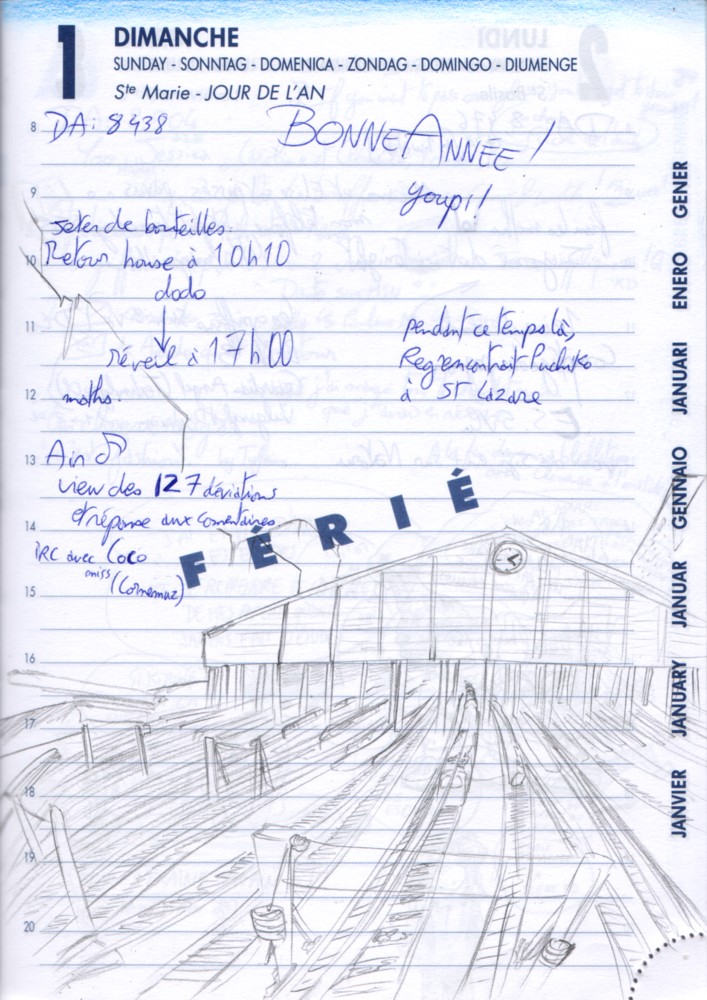 1 DIMANCHE
SUNDAY - SONNTAG - DOMENICA - ZONDAG - DOMINGO - DIUMENGE
Ste Marie - JOUR DE L'AN
8
DA: 8438
BONNE ANNÉE !
youpi!
9
jeter de bouteilles.
10
Retour house à 10h10
dodo
11
réveil à 17h00
12
maths
pendant ce temps là,
Reg rencontrait Puchiko
à St Lazare
13
Ain
view des 127 déviations
et réponse aux comentaires
14
FÉRIÉ
IRC avec Coco
miss (Cornemuz)
15
16
17
18
19
20
JANVIER JANUARY JANUAR GENNAIO JANUARI ENERO GENER